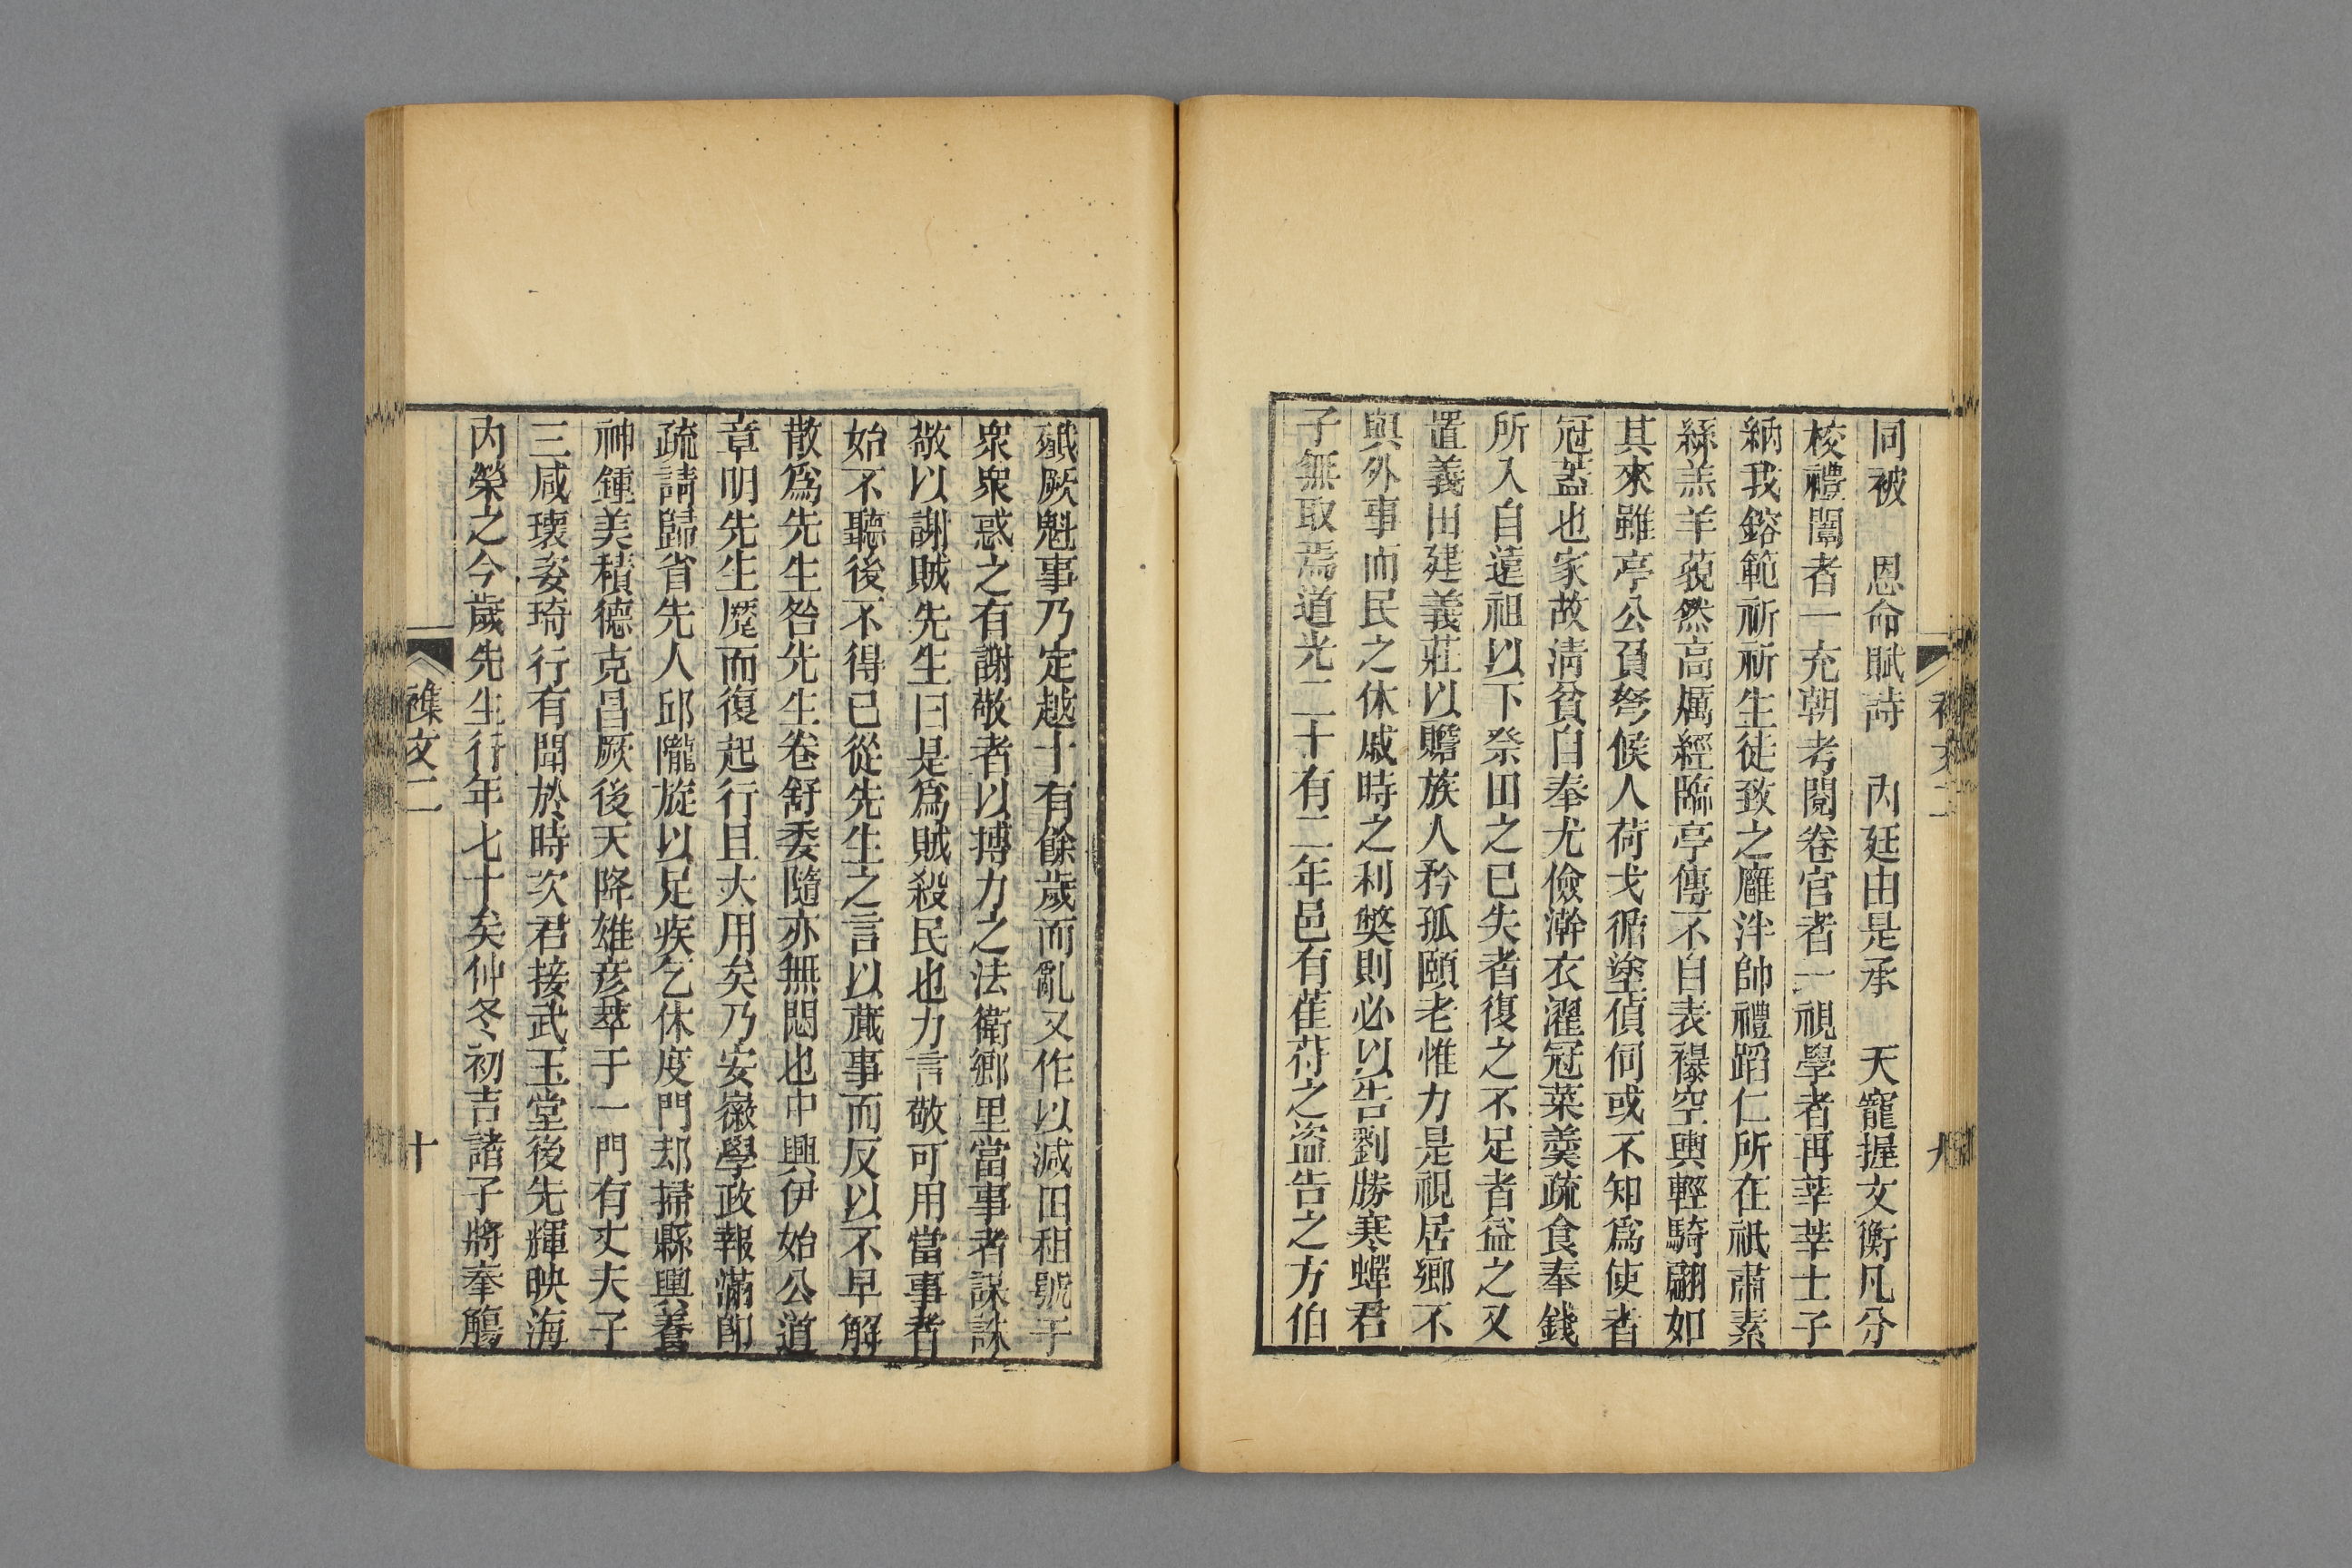 同被　恩命賦詩　內廷由是承　天寵握文衡凡分
校禮闈者一充朝考閱卷官者一視學者再莘莘士子
納我鎔範祈祈生徒致之廱泮帥禮蹈仁所在祇肅素
絲羔羊藐然高厲經臨亭傳不自表襮空輿輕騎翩如
其來雖亭公負弩候人荷戈循塗偵伺或不知爲使者
冠蓋也家故淸貧自奉尤儉澣衣濯冠菜羹疏食奉錢
所入自遠祖以下祭田之已失者復之不足者益之又
置義田建義莊以贍族人矜孤頤老惟力是視居鄉不
與外事而民之休戚時之利獘則必以告劉勝寒蟬君
子無取焉道光二十有二年邑有萑苻之盜告之方伯
九
殲厥魁事乃定越十有餘歲而亂又作以減田租號于
衆衆惑之有謝敬者以搏力之法衛鄉里當事者謀誅
敬以謝賊先生曰是爲賊殺民也力言敬可用當事者
始不聽後不得已從先生之言以蕆事而反以不早解
散爲先生咎先生卷舒委隨亦無悶也中興伊始公道
章明先生蹷而復起行且大用矣乃安徽學政報滿卽
疏請歸省先人邱隴旋以足疾乞休度門却掃縣輿養
神鍾美積德克昌厥後天降雄彥萃于一門有丈夫子
三咸瓌姿琦行有聞於時次君接武玉堂後先輝映海
內榮之今歲先生行年七十矣仲冬初吉諸子將奉觴
襍文二
十